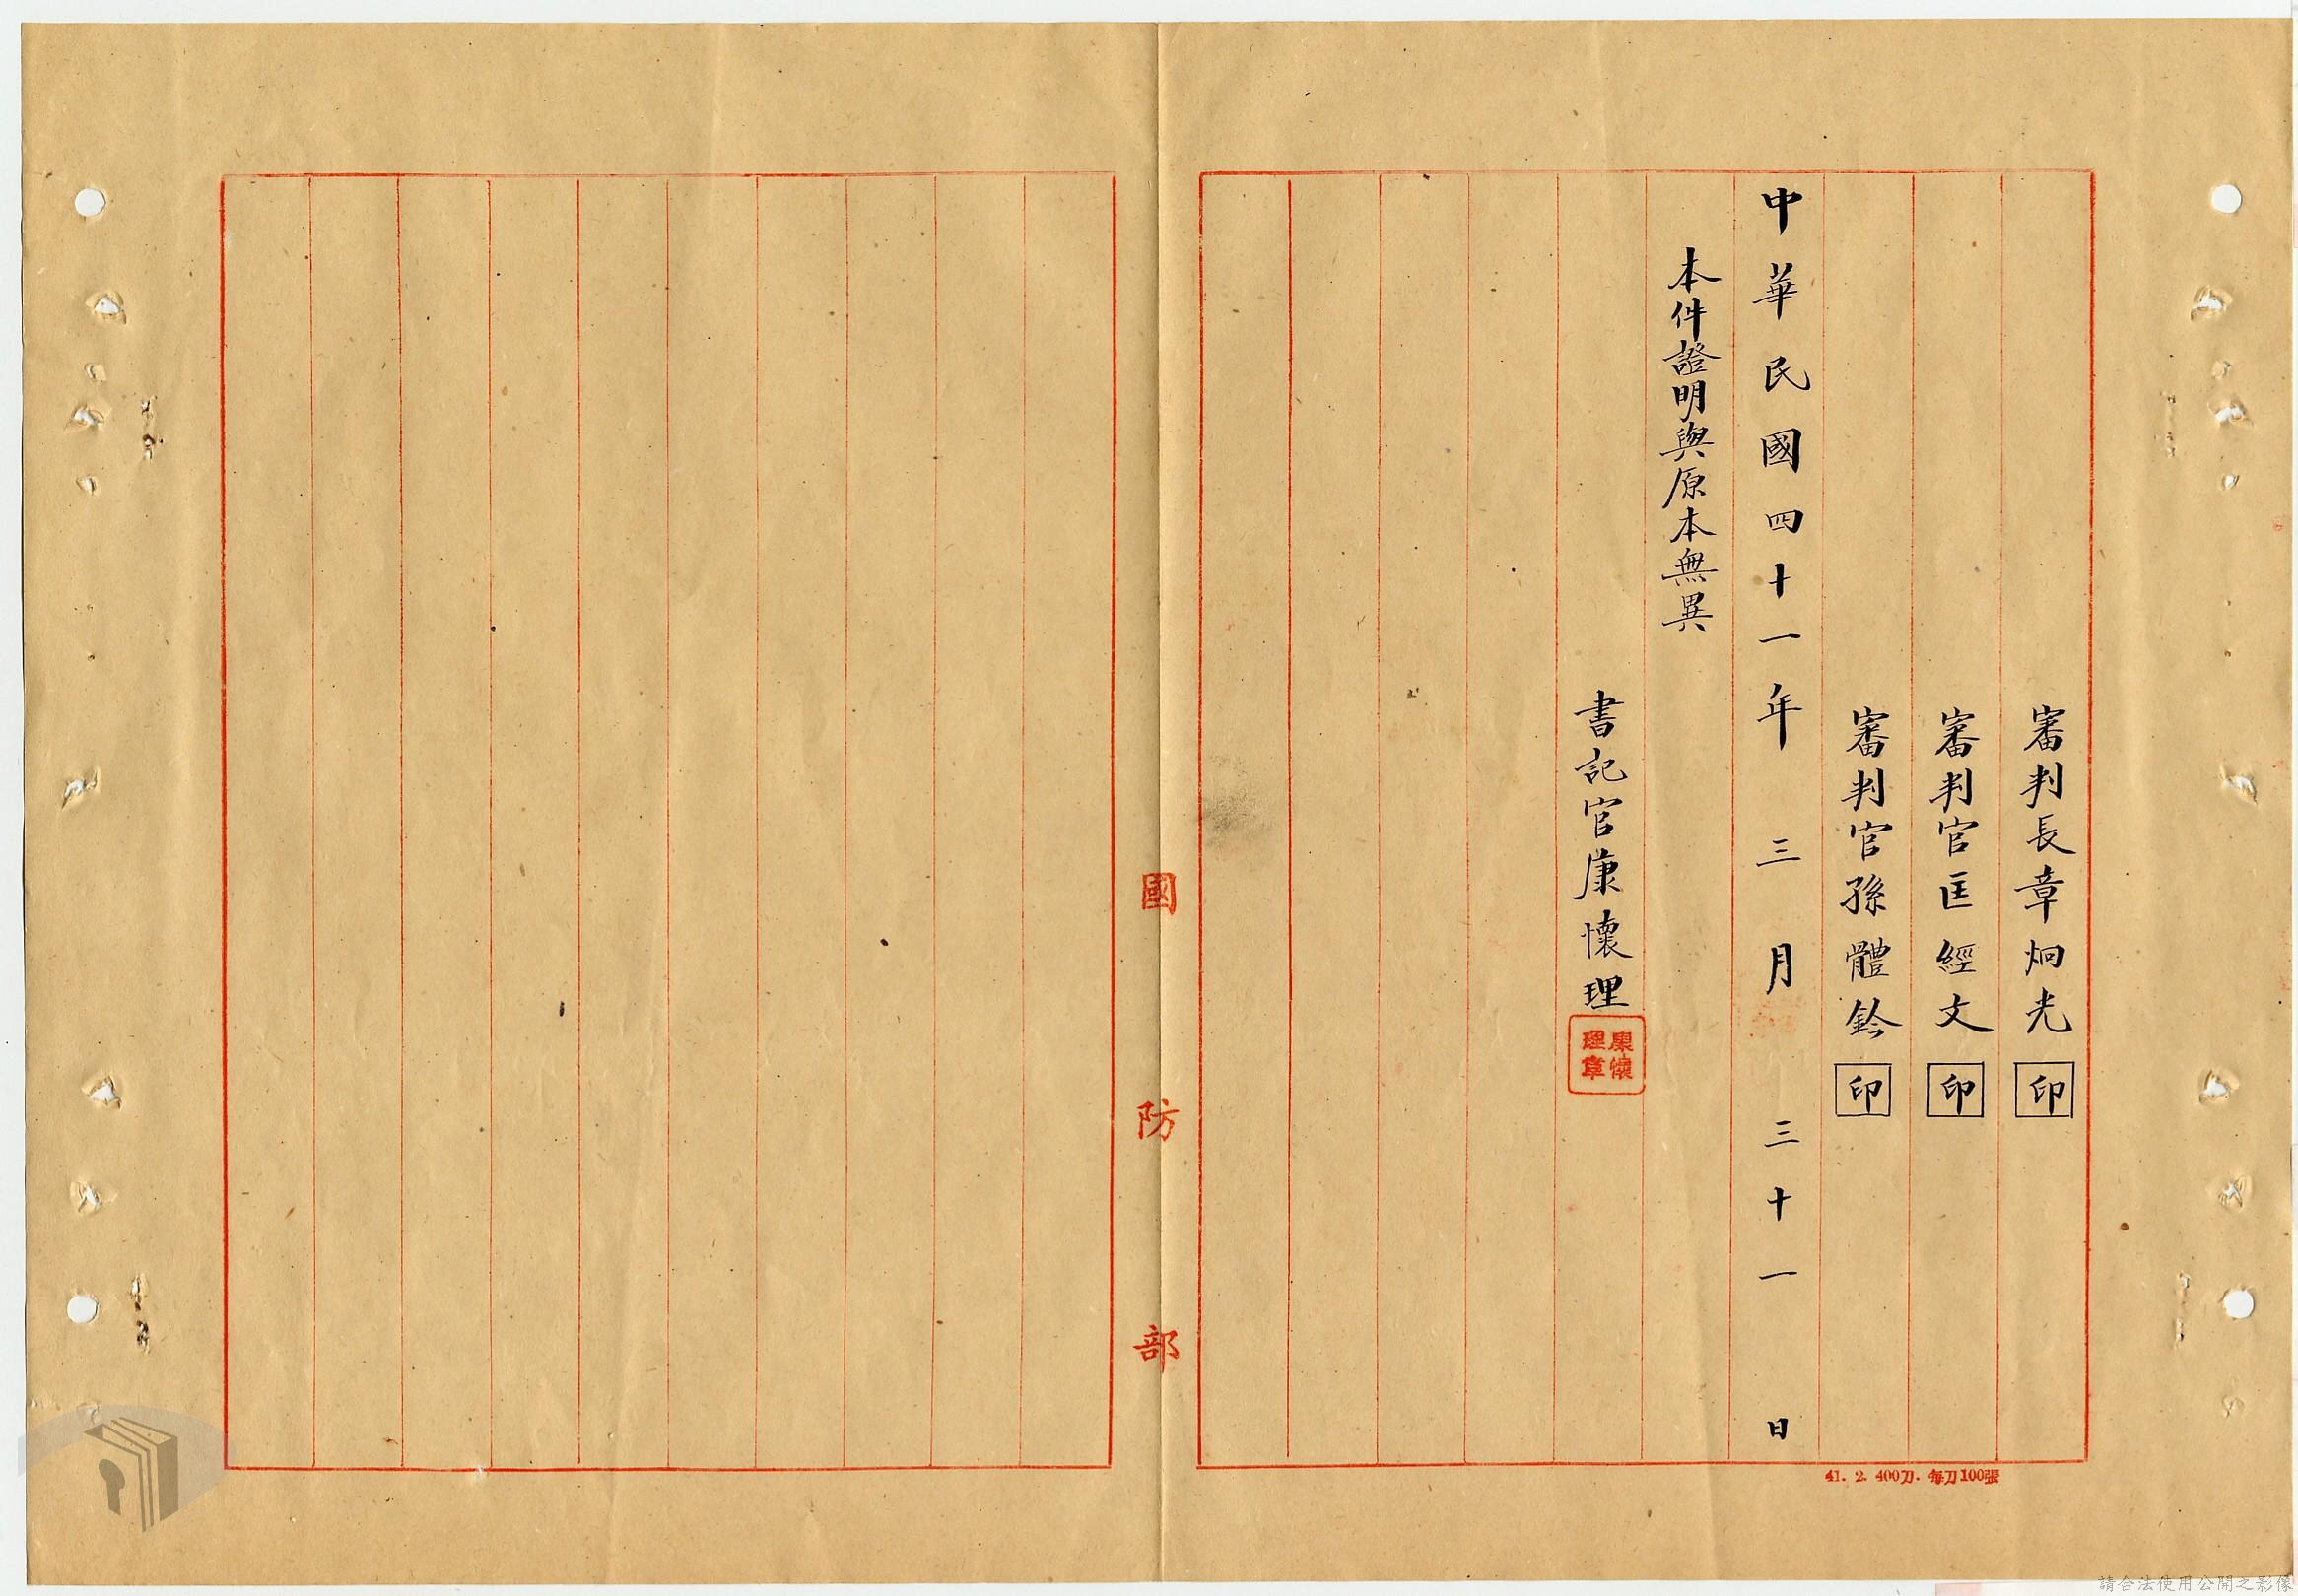 審判長章炯光印
審判官匡經文印
審判官孫體鈐印
中華民國四十一年三月三十一日
本件證明與原本無異
書記官康懷理
康懷理章
國防部
41. 2. 400刀. 每刀100張
請合法使用公開之影像